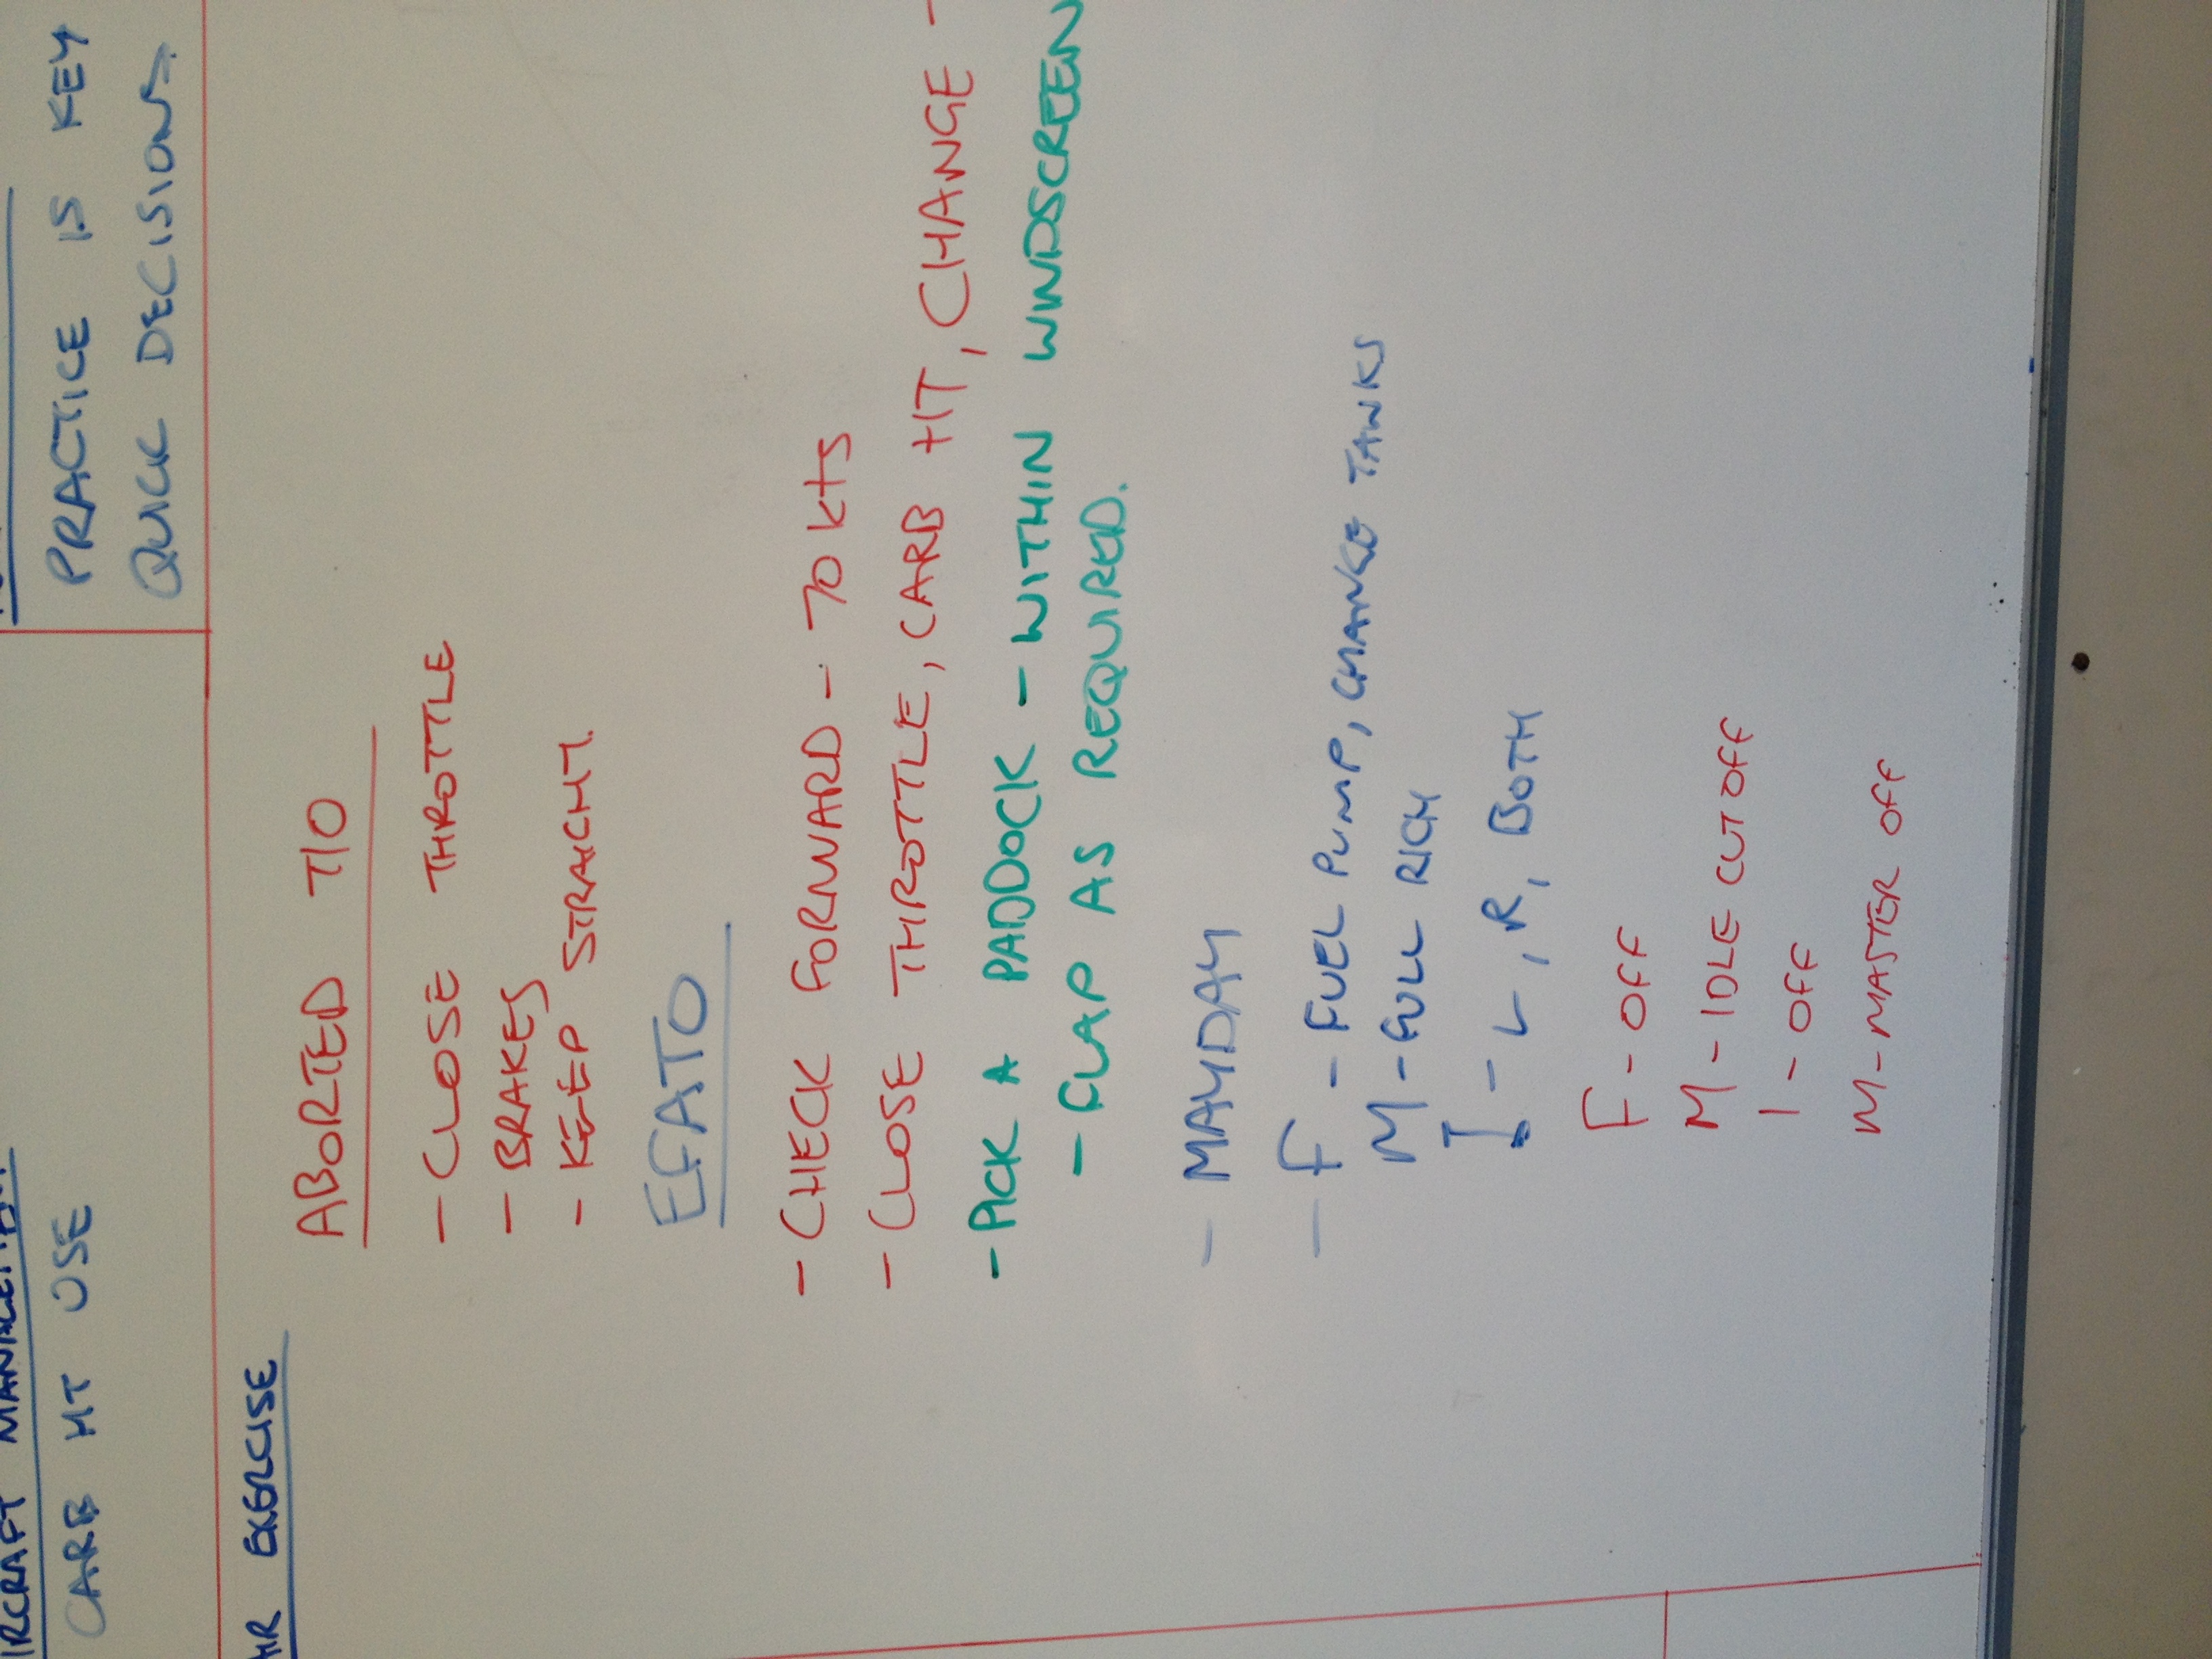 IRCRAFT MANAGEMENT
CARB HT USE
PRACTICE IS KEY
QUICK DECISIONS
AIR EXERCISE
ABORTED T/O
- CLOSE THROTTLE
- BRAKES
- KEEP STRAIGHT.
EFATO
- CHECK FORWARD - 70 kts
- CLOSE THROTTLE, CARB HT, CHANGE
- PICK A PADDOCK - WITHIN WINDSCREEN
- FLAP AS REQUIRED.
- MAYDAY
- F - FUEL PUMP, CHANGE TANKS
M - FULL RICH
I - L, R, BOTH
F - OFF
M - IDLE CUT OFF
I - OFF
M - MASTER OFF